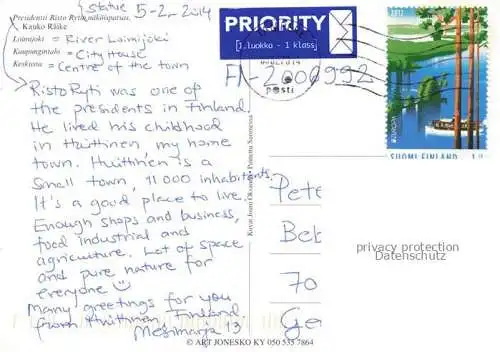 statue 5-2-2014
Presidentti Risto Rytin näköispatsas,
Kauko Räike
Loimijoki = River Loimijoki
Kaupungintalo = City House
Keskusta = Centre of the town
Risto Ryti was one of
the presidents in Finland.
He lived his childhood
in Huittinen, my home
town. Huittinen is a
small town, 11 000 inhabitants.
It's a good place to live.
Enough shops and business,
food industrial and
agriculture. Lot of space
and pure nature for
everyone ☺
Many greetings for you
from Huittinen, Finland
Mesimarja 13
PRIORITY
[1.luokka - 1 klass]
FI-2000992
posti
2012
EUROPA
SUOMI FINLAND 1.lk
Kuvat Jouni Oksanen • Painotta Sarmonox
Pete
Beb
70
Ge
privacy protection
Datenschutz
© ART JONESKO KY 050 535 7864